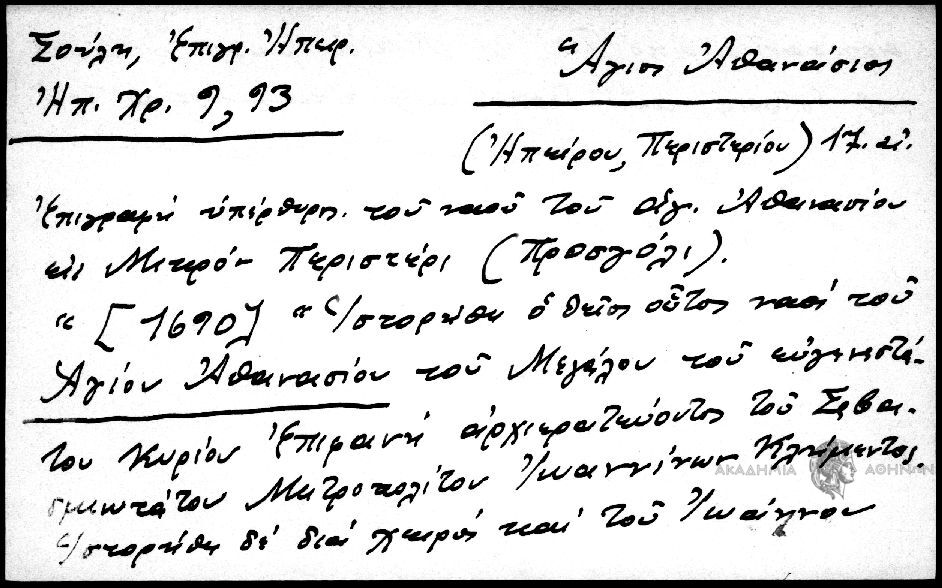 Σούλη, Ἐπιγρ. Ἠπειρ.
Ἅγιος Ἀθανάσιος
Ἠπ. Χρ. 9, 93
(Ἠπείρου, Περιστερίου) 17. αἰ.
Ἐπιγραφή ὑπέρθυρος. τοῦ ναοῦ τοῦ ἁγ. Ἀθανασίου
εἰς Μικρόν Περιστέρι (Προσγόλι).
" [1690] " Ἱστορήθη ὁ θεῖος οὗτος ναός τοῦ
Ἁγίου Ἀθανασίου τοῦ Μεγάλου τοῦ εὐγενεστά-
του Κυρίου Ἐπιφανή ἀρχιερατεύοντος τοῦ Σεβα-
σμιωτάτου Μητροπολίτου Ἰωαννίνων Κλήμεντος.
ΑΚΑΔΗΜΙΑ ΑΘΗΝΩΝ
Ἱστορήθη δέ διά χειρός καί τοῦ Ἰωάννου